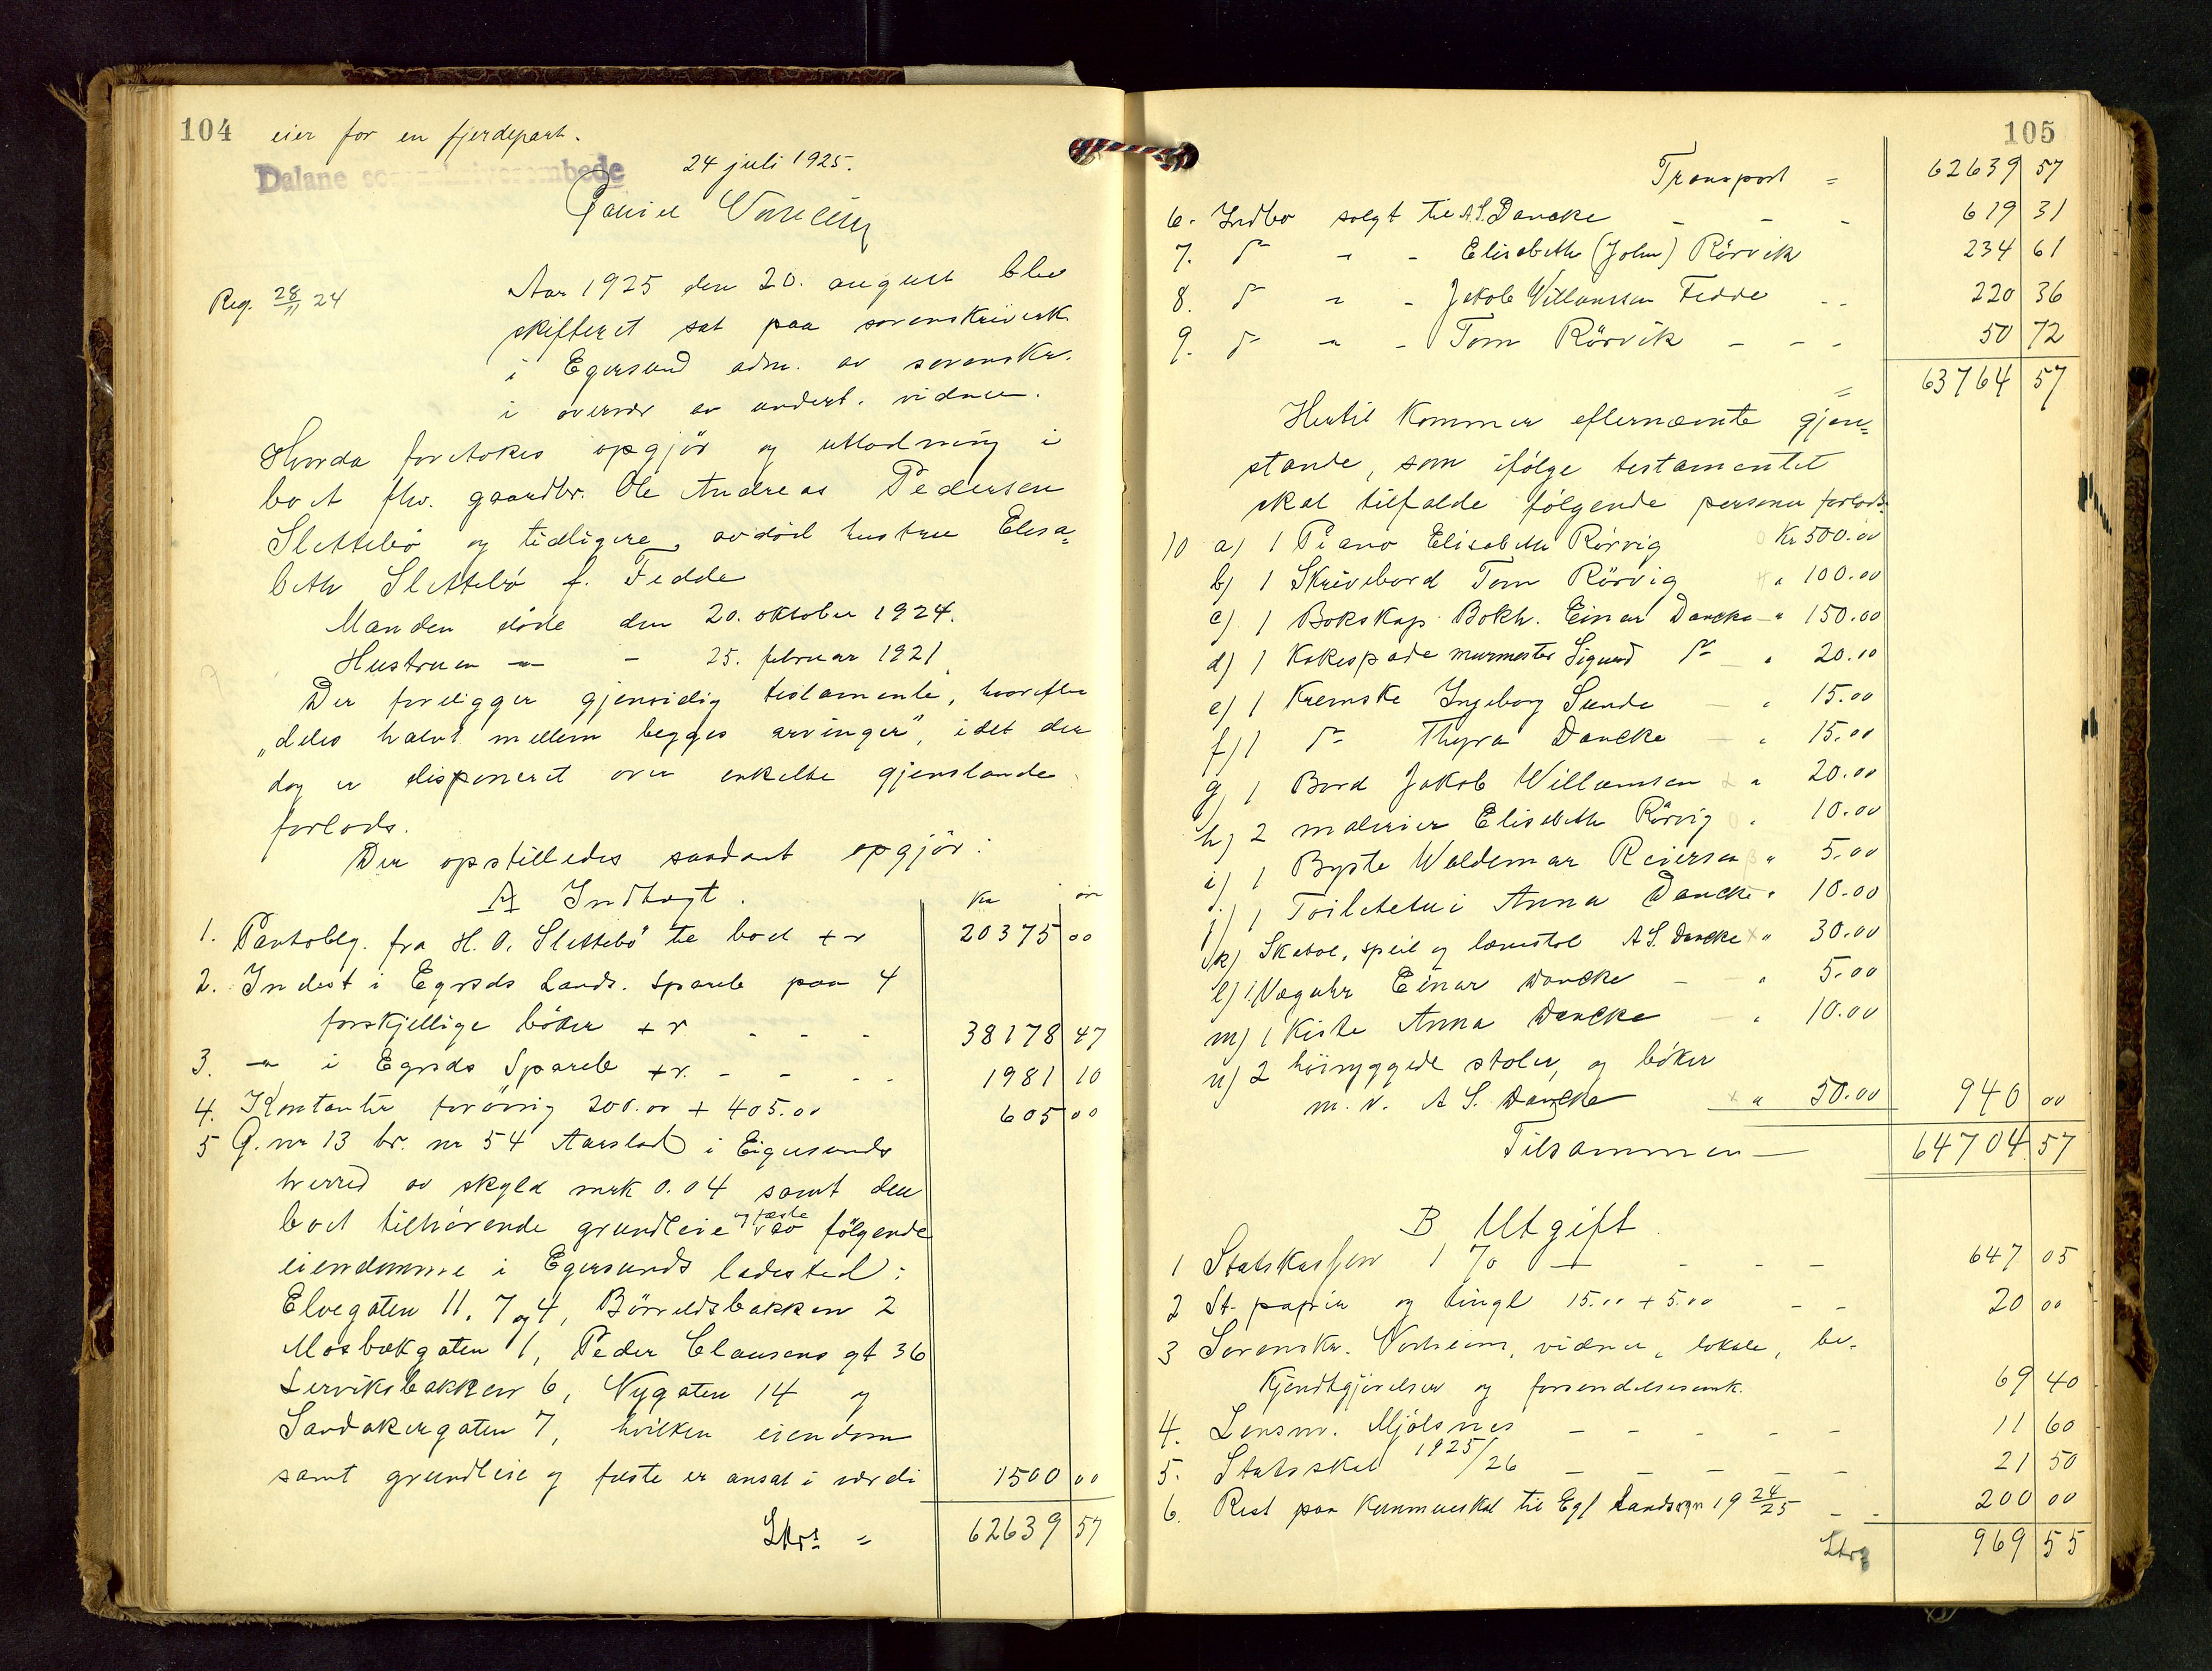 104 eier for en fjerdepart.
Dalane
24 juli 1925.
Reg. 28/11 24
Aar 1925 den 20. august blev
skifteret sat paa sorenskriverk.
i Egersund adm. av sorenskr.
i overvær av undert. vidner.
Hvorda foretokes opgjör og utlodning i
boet fhv. gaardbr. Ole Andreas Pedersen
Slettebö og tidligere avdöd hustru Elisa=
beth Slettebö f. Fedde
Manden döde den 20. oktober 1924.
Hustruen — - 25. februar 1921
Der foreligger gjensidig testamente, hvorefter
"deles halvt mellem begges arvinger", idet der
dog er disponeret over enkelte gjenstande
forlods.
Der opstilledes saadant opgjör:
A Indtægt. Kr ör
1. Pantoblg. fra H. O. Slettebö til boet + r 20375 00
2. Indest i Egrsds Lands. Spareb paa 4
forskjellige böker + r - - - 38178 47
3. — i Egrsds Spareb + r. - - - - 1981 10
4. Kontanter forövrig 200.00 + 405.00 605 00
5 G. nr 13 br. nr 54 Aarstad i Eigersunds
herred av skyld mrk 0.04 samt den
boet tilhörende grundleie og fæste av fölgende
eiendomme i Egersunds ladested:
Elvegaten 11, 7 og 4, Börreldsbakken 2
Mosbækgaten 1, Peder Clausens gt 36
Lerviksbakken 6, Nygaten 14 og
Sandakergaten 7, hvilken eiendom
samt grundleie og fæste er ansat i værdi 1500 00
Ltrs = 62639 57
105
Transport = 62639 57
6. Indbo solgt til A.S. Dancke - - - 619 31
7. do " - Elisabeth (John) Rörvik 234 61
8. do " - Jakob Willumsen Fedde - - 220 36
9. do " - Tom Rörvik - - - 50 72
63764 57
Hertil kommer efternævnte gjen=
stande, som ifölge testamentet
skal tilfalde fölgende personer forlods:
10 a) 1 Piano Elisabeth Rörvig Kr 500.00
b) 1 Skrivebord Tom Rörvig " 100.00
c) 1 Bokskap Bokh. Einar Dancke - " 150.00
d) 1 Kakespade murmester Sigurd do " 20.00
e) 1 Kremske Ingeborg Sunde - " 15.00
f) 1 do Thyra Dancke - " 15.00
g) 1 Bord Jakob Willumsen " 20.00
h) 2 malerier Elisabeth Rörvig " 10.00
i) 1 Byste Waldemar Reiersen " 5.00
j) 1 Toiletetui Anna Dancke " 10.00
k) Skatol, speil og lænestol A S. Dancke " 30.00
l) 1 Væguhr Einar Dancke - " 5.00
m) 1 Kiste Anna Dancke - " 10.00
n) 2 höiryggede stoler, og böker
m. v. A S. Dancke " 50.00 940 00
Tilsammen — 64704 57
B Utgift
1 Statskassen 1 % - - - - 647 05
2 St. papir og tingl 15.00 + 5.00 - - 20 00
3 Sorenskr. vidner, lokale, be-
kjendtgjörelser og forsendelsesomk. 69 40
4. Lensm. Mjölsnes - - - - - 11 60
5. Statsskat 1925/26 - - - - - 21 50
6. Rest paa Kommuneskat til Egs Landsogn 19 24/25 - - 200 00
Ltrs 969 55